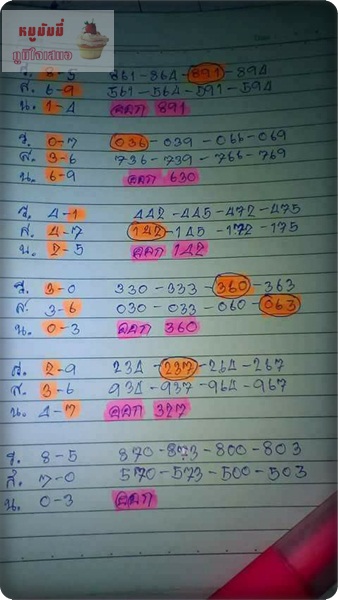 หนูมัยมี่
ภูมิใจเสนอ
ร. 8-5 861-864-891-894
ส. 6-9 561-564-591-594
น. 1-4 ออก 891
ร. 0-7 036-039-066-069
ส. 3-6 736-739-766-769
น. 6-9 ออก 630
ร. 4-1 442-445-472-475
ส. 4-7 142-145-172-175
น. 2-5 ออก 142
ร. 3-0 330-333-360-363
ส. 3-6 030-033-060-063
น. 0-3 ออก 360
ร. 2-9 234-237-264-267
ส. 3-6 934-937-964-967
น. 4-7 ออก 327
ร. 8-5 870-873-800-803
ส. 7-0 570-573-500-503
น. 0-3 ออก